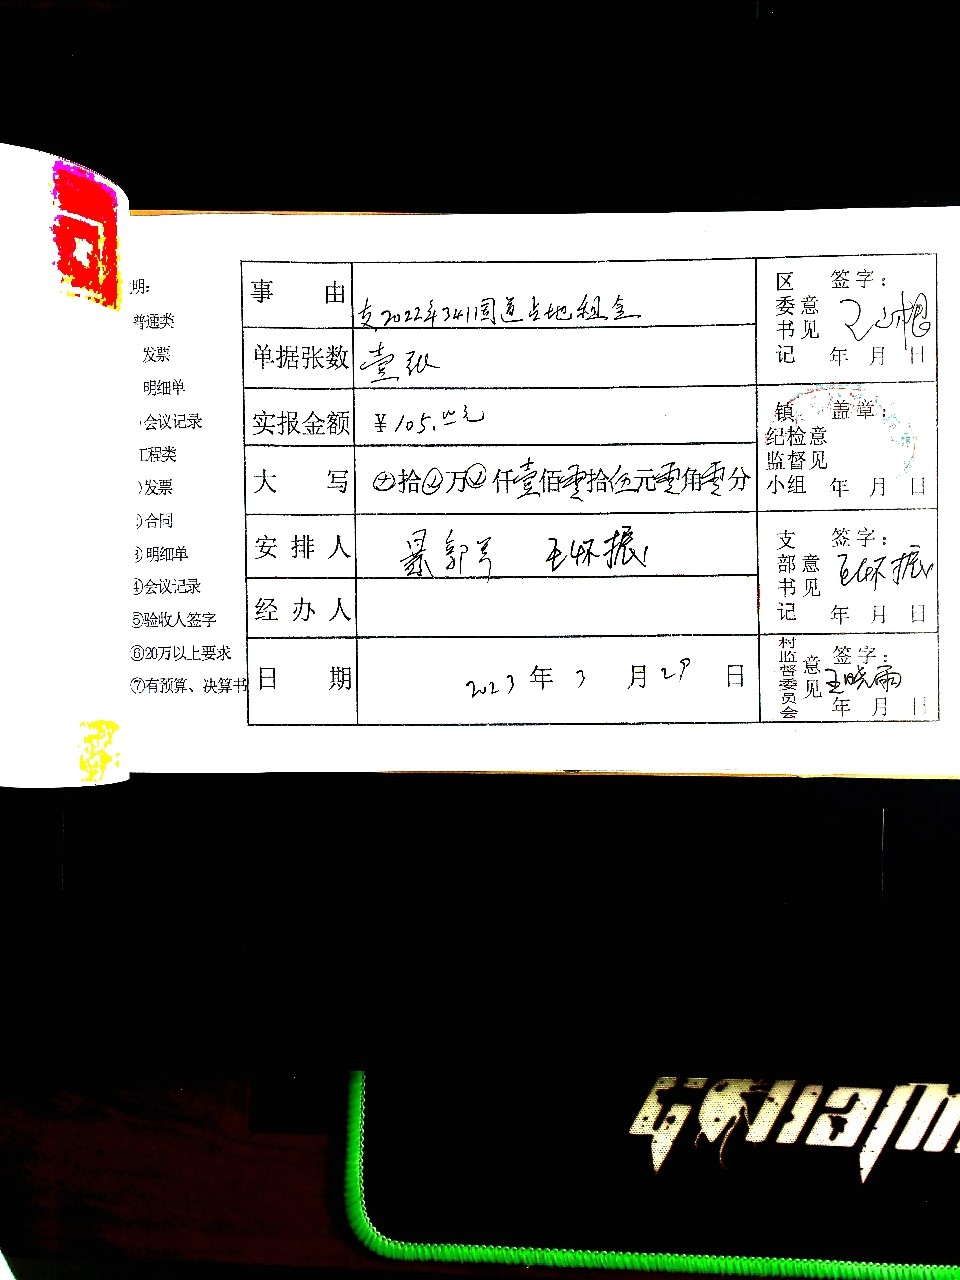 明:
普通类
发票
明细单
会议记录
工程类
发票
合同
明细单
④会议记录
⑤验收人签字
⑥20万以上要求
⑦有预算、决算书
事 由 支2022年341国道占地租金
单据张数 壹张
实报金额 ¥105.00元
大 写 拾 万 仟壹佰零拾伍元零角零分
安 排 人 王怀振
经 办 人
日 期 2023 年 3 月 29 日
区委书记意见 签字:
年 月 日
镇纪检监督小组意见 盖章:
年 月 日
支部书记意见 签字:
王怀振
年 月 日
村监督委员会意见 签字:
王晓雨
年 月 日